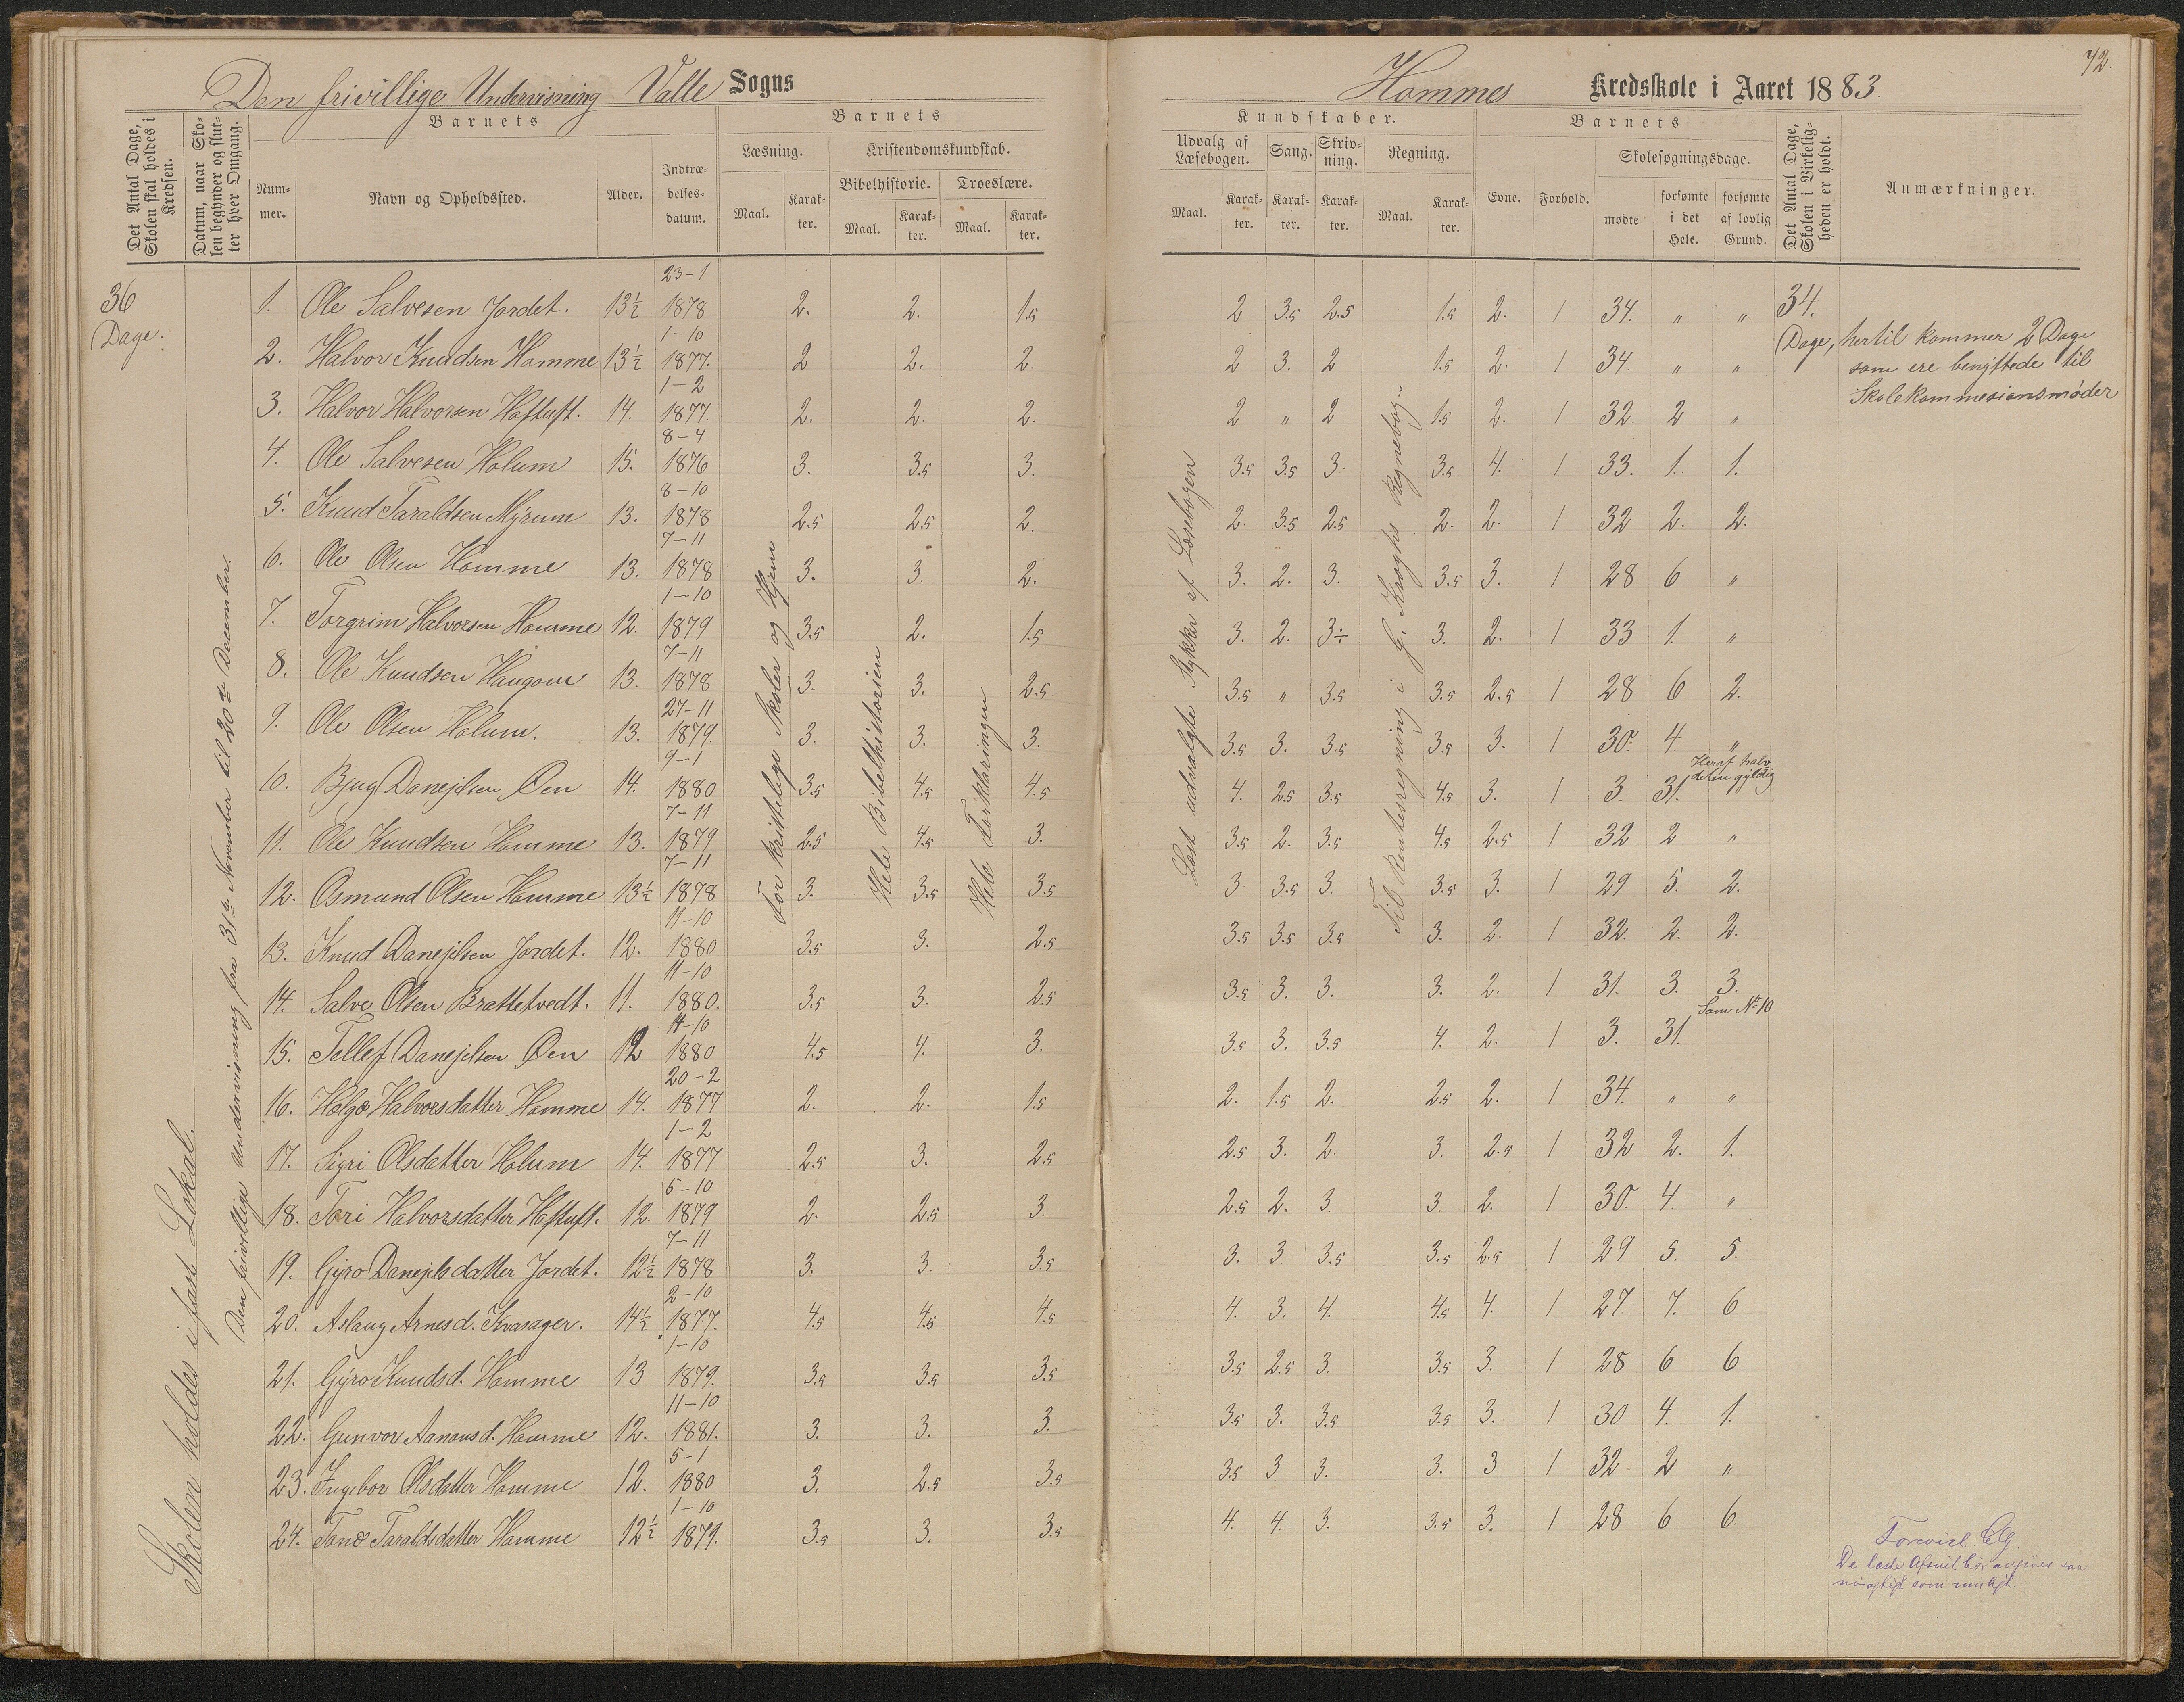 Den frivillige Undervisning Valle Sogns
Det Antal Dage, Skolen skal holdes i Kredsen.
Datum, naar Skolen begynder og slutter hver Omgang.
Barnets
Nummer.
Navn og Opholdssted.
Alder.
Indtrædelsesdatum.
Barnets
Læsning.
Maal.
Karakter.
Kristendomskundskab.
Bibelhistorie.
Maal.
Karakter.
Troeslære.
Maal.
Karakter.
Homme Kredsskole i Aaret 1883.
72.
Kundskaber.
Udvalg af Læsebogen.
Maal.
Karakter.
Sang.
Karakter.
Skrivning.
Karakter.
Regning.
Maal.
Karakter.
Barnets
Evne.
Forhold.
Skolesøgningsdage.
mødte
forsømte i det Hele.
forsømte af lovlig Grund.
Det Antal Dage, Skolen i Virkeligheden er holdt.
Anmærkninger.
36 Dage.
Skolen holdes i fast Lokal.
Den frivillige Undervisning fra 31te November til 20de December.
For kristelige Skoler og Hjem
Hele Bibelhistorien
Hele Forklaringen
Læst udvalgte Stykker af Læsebogen
Til Rentesregning i G. Kroghs Regnebog
1. Ole Salvesen Jordet. 13½ 23-1 1878 2. 2. 1.5 2 3.5 2.5 1.5 2. 1 34. " " 34.
2. Halvor Knudsen Homme 13½ 1-10 1877. 2 2. 2. 2 3. 2 1.5 2. 1 34. " " Dage, hertil kommer 2 Dage
som ere benyttede til
Skolekommesionsmøder
3. Halvor Halvorsen Haftuft. 14. 1-2 1877. 2. 2. 2. 2 " 2 1.5 2. 1 32. 2 "
4. Ole Salvesen Holum 15. 8-4 1876 3. 3.5 3. 3.5 3.5 3. 3.5 4. 1 33. 1. 1.
5. Knud Taraldsen Myrum 13. 8-10 1878 2.5 2.5 2. 2. 3.5 2.5 2. 2. 1 32 2. 2.
6. Ole Olsen Homme 13. 7-11 1878 3. 3. 2. 3. 2. 3. 3.5 3. 1 28 6 "
7. Torgrim Halvorsen Homme 12. 1-10 1879 3.5 2. 1.5 3. 2. 3÷ 3. 2. 1 33 1. "
8. Ole Knudsen Haugom 13. 7-11 1878 3. 3. 2.5 3.5 " 3.5 3.5 2.5 1 28 6 2.
9. Ole Olsen Holum. 13. 27-11 1879. 3. 3. 3. 3.5 3. 3.5 3.5 3. 1 30. 4. "
10. Bjug Danejelsen Øen 14. 9-1 1880 3.5 4.5 4.5 4. 2.5 3.5 4.5 3. 1 3. 31. Heraf halvdelen gyldig
11. Ole Knudsen Homme 13. 7-11 1879 2.5 4.5 3. 3.5 2. 3.5 4.5 2.5 1 32 2 "
12. Osmund Olsen Homme 13½ 7-11 1878 3. 3.5 3.5 3 3.5 3. 3.5 3. 1 29 5. 2.
13. Knud Danejelsen Jordet. 12. 11-10 1880 3.5 3. 2.5 3.5 3.5 3.5 3. 2. 1 32. 2. 2.
14. Salve Olsen Brattetvedt. 11. 11-10 1880. 3.5 3. 2.5 3.5 3. 3. 3. 2. 1 31. 3. 3.
15. Tellef Danejelsen Øen 12 14-10 1880 4.5 4. 3. 3.5 3. 3.5 4. 2. 1 3. 31. Som No 10
16. Helge Halvorsdatter Homme 14. 20-2 1877 2. 2. 1.5 2. 1.5 2. 2.5 2. 1 34. " "
17. Sigri Olsdatter Holum 14. 1-2 1877 2.5 3. 2.5 2.5 3. 2. 3. 2.5 1 32 2. 1.
18. Tori Halvorsdatter Haftuft. 12. 5-10 1879 2. 2.5 3. 2.5 2. 3. 3. 2. 1 30. 4. "
19. Gyro Danejelsdatter Jordet. 12½ 7-11 1878 3. 3. 3.5 3. 3. 3.5 3.5 2.5 1 29 5. 5.
20. Aslaug Arnesd. Kvasager. 14½ 2-10 1877. 4.5 4.5 4.5 4. 3. 4. 4.5 4. 1 27 7. 6
21. Gyro Knudsd. Homme 13 1-10 1879. 3.5 3.5 3.5 3.5 2.5 3. 3.5 3. 1 28 6 6
22. Gunvor Aanonsd. Homme 12. 11-10 1881. 3. 3. 3. 3.5 3. 3.5 3.5 3. 1 30 4. 1.
23. Ingebor Olsdatter Homme 12. 5-1 1880 3. 2.5 3.5 3.5 3 3. 3. 3 1 32 2 "
24. Tone Taraldsdatter Homme 12½ 1-10 1879. 3.5 3. 3.5 4. 4. 3. 3.5 3. 1 28 6 6.
Forevist
De læste Afsnit bør angives saa
nøiagtigt som muligt.